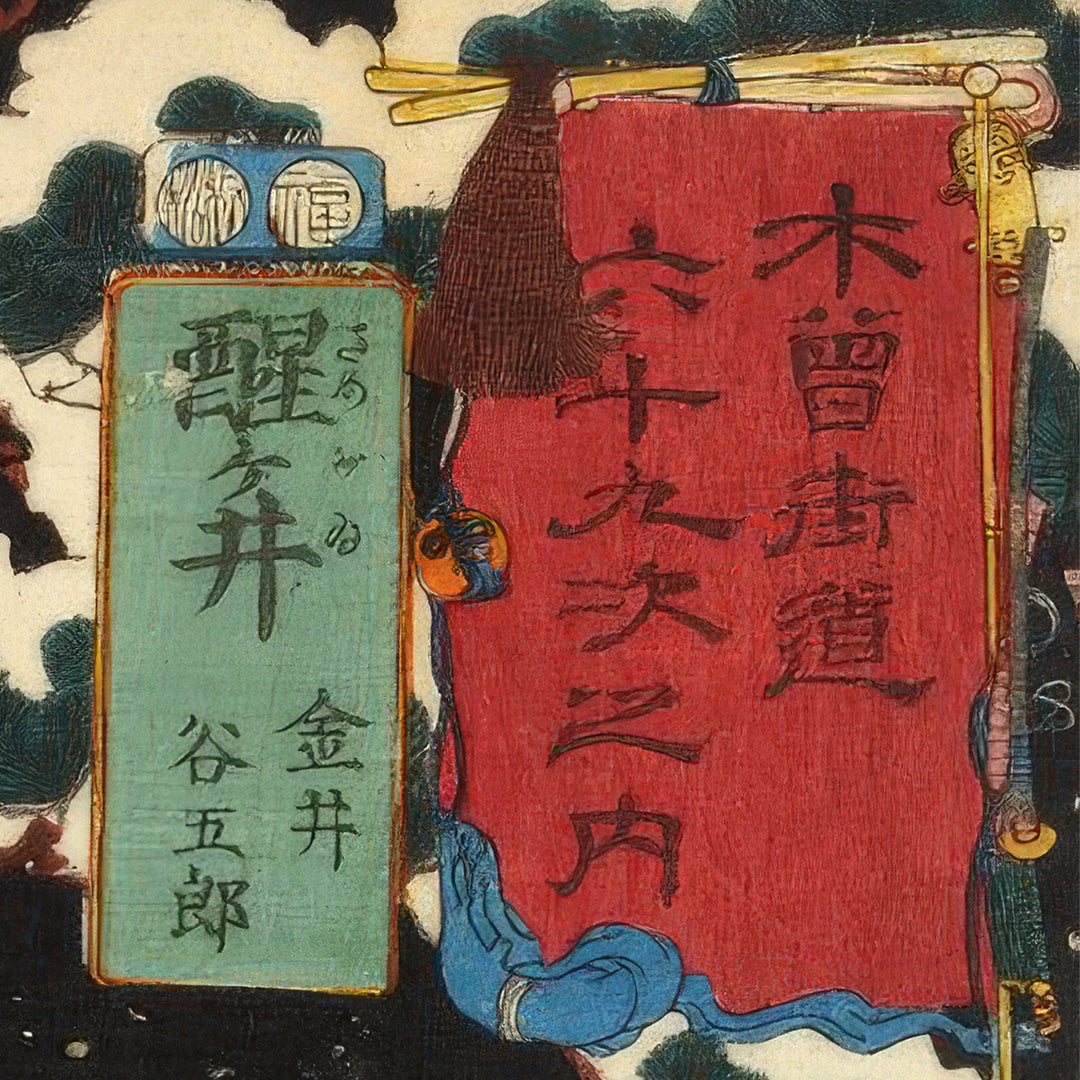 木曾街道
六十九次之内
さめがゐ
醒ヶ井
金井
谷五郎
福